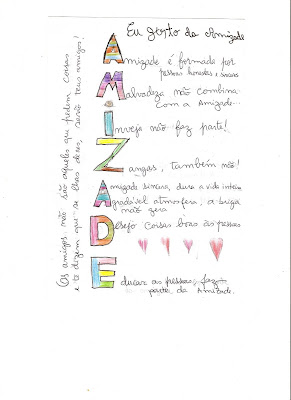 Eu gosto da Amizade
Amizade é formada por
pessoas honestas e boas
Malvadeza não combina
com a Amizade.
inveja não faz parte!
Zangas, também não!
Amizade sincera, dura a vida inteira
Agradável atmosfera, a briga
não gera
Desejo coisas boas às pessoas
Educar as pessoas, faz
parte da Amizade.
(Os amigos não são aqueles que pedem coisas
e te dizem que se lhas deres, serão teus amigos!